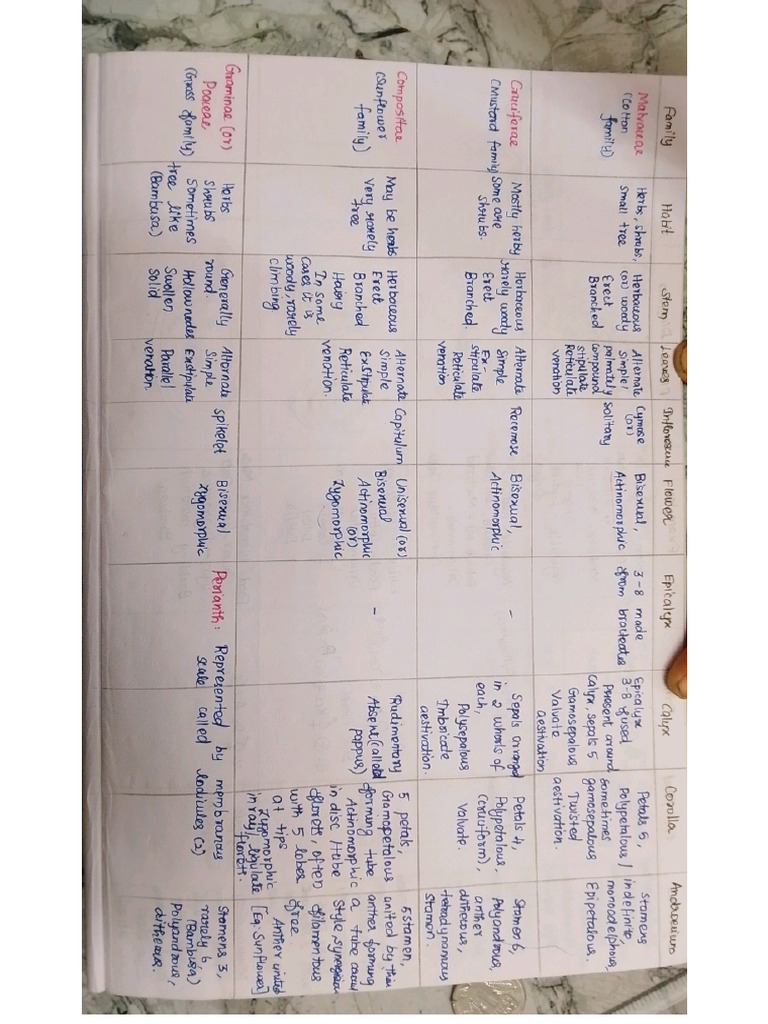 Family
Habit
Stem
Leaves
Inflorescence
Flower
Epicalyx
Calyx
Corolla
Androecium
Malvaceae
(Cotton
family)
Herbs, shrubs,
small tree
Herbaceous
(or) woody
Erect
Branched
Alternate
Simple/
palmately
compound
stipulate
Reticulate
venation
Cymose
(or)
solitary
Bisexual,
Actinomorphic
3-8 made
from bracteates
Epicalyx
3-8 fused
present around
calyx, sepals 5
Gamosepalous
Valvate
aestivation
Petals 5,
Polypetalous/
sometimes
gamosepalous
Twisted
aestivation.
Stamens
indefinite,
monoadelphous,
Epipetalous.
Cruciferae
(Mustard family)
Mostly herby
some are
shrubs.
Herbaceous
rarely woody
Erect
Branched.
Alternate
Simple
Ex-
stipulate
Reticulate
venation
Racemose
Bisexual,
Actinomorphic
-
Sepals arranged
in 2 whorls of
each,
Polysepalous
Imbricate
aestivation.
Petals 4,
Polypetalous,
(cruciform),
Valvate.
Stamen 6,
Polyandrous,
anther
dithecous,
tetradynamous
stamen.
Compositae
(Sunflower
family)
May be herbs
very rarely
tree
Herbaceous
Erect
Branched
Hairy
In some
cases it is
woody, rarely
climbing
Alternate
Simple
Exstipulate
Reticulate
venation.
Capitulum
Unisexual (or)
Bisexual
Actinomorphic
(or)
Zygomorphic
-
Rudimentary
Absent (called
pappus)
5 petals,
Gamopetalous
forming tube
Actinomorphic
in disc/tube
floret, often
with 5 lobes
at tips
Zygomorphic
in ray/ligulate
floret.
5 stamen,
united by thin
anther forming
a tube around
style syngenesious
filamentous
free
Anther united
[Eg: Sunflower]
Graminae (or)
Poaceae
(Grass family)
Herbs
Shrubs
Sometimes
tree like
(Bambusa)
Generally
round.
Hollow nodes
Swollen,
Solid
Alternate
Simple
Exstipulate
Parallel
venation.
Spikelet
Bisexual
zygomorphic
Perianth: Represented by membranous
scale called lodicules (2)
Stamens 3,
rarely 6
(Bambusa)
Polyandrous,
dithecus.